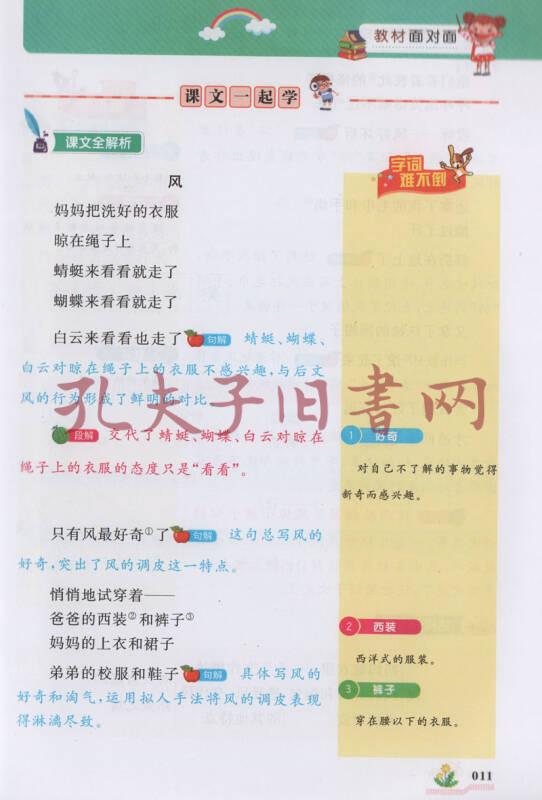 教材面对面
课文一起学
课文全解析
风
妈妈把洗好的衣服
晾在绳子上
蜻蜓来看看就走了
蝴蝶来看看就走了
白云来看看也走了 句解 蜻蜓、蝴蝶、
白云对晾在绳子上的衣服不感兴趣,与后文
风的行为形成了鲜明的对比。
段解 交代了蜻蜓、蝴蝶、白云对晾在
绳子上的衣服的态度只是“看看”。
只有风最好奇①了 句解 这句总写风的
好奇,突出了风的调皮这一特点。
悄悄地试穿着——
爸爸的西装②和裤子③
妈妈的上衣和裙子
弟弟的校服和鞋子 句解 具体写风的
好奇和淘气,运用拟人手法将风的调皮表现
得淋漓尽致。
字词
难不倒
1 好奇
对自己不了解的事物觉得
新奇而感兴趣。
2 西装
西洋式的服装。
3 裤子
穿在腰以下的衣服。
孔夫子旧书网
011